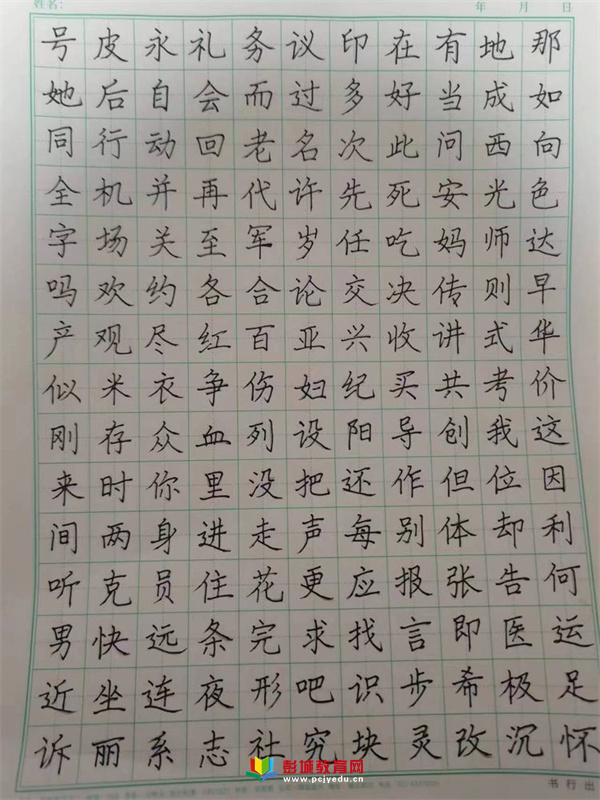 姓名: 年 月 日
号皮永礼务议印在有地那
她后自会而过多好当成如
同行动回老名次此问西向
全机并再代许先死安光色
字场关至军岁任吃妈师达
吗欢约各合论交决传则早
产观尽红百亚兴收讲式华
似米衣争伤妇纪买共考价
刚存众血列设阳导创我这
来时你里没把还作但位因
间两身进走声每别体却利
听克员住花更应报张告何
男快远条完求找言即医运
近坐连夜形吧识步希极足
诉丽系志社究块灵改沉怀
彭城教育网
www.pcjyedu.cn
书行出